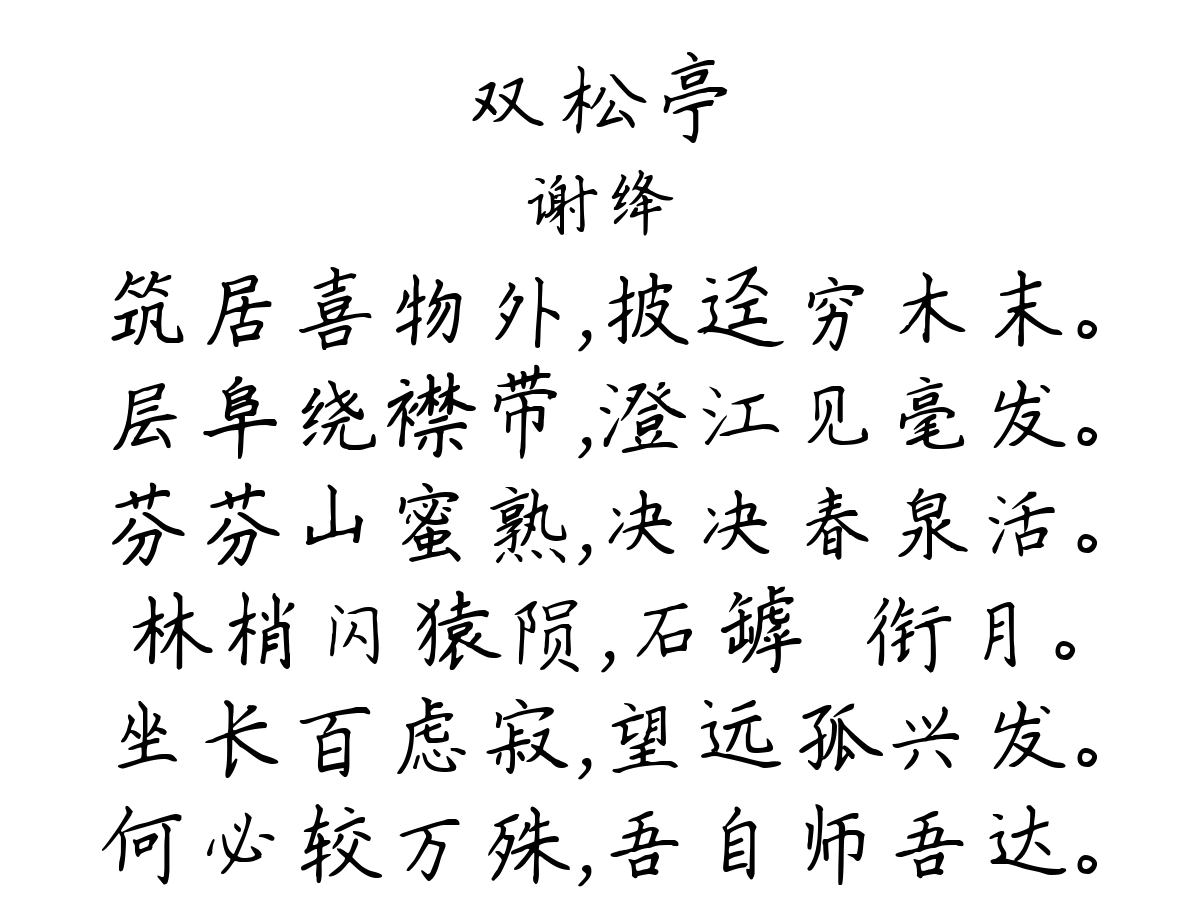 双松亭
谢绛
筑居喜物外,披迳穷木末。
层阜绕襟带,澄江见毫发。
芬芬山蜜熟,决决春泉活。
林梢闪猿陨,石罅 衔月。
坐长百虑寂,望远孤兴发。
何必较万殊,吾自师吾达。